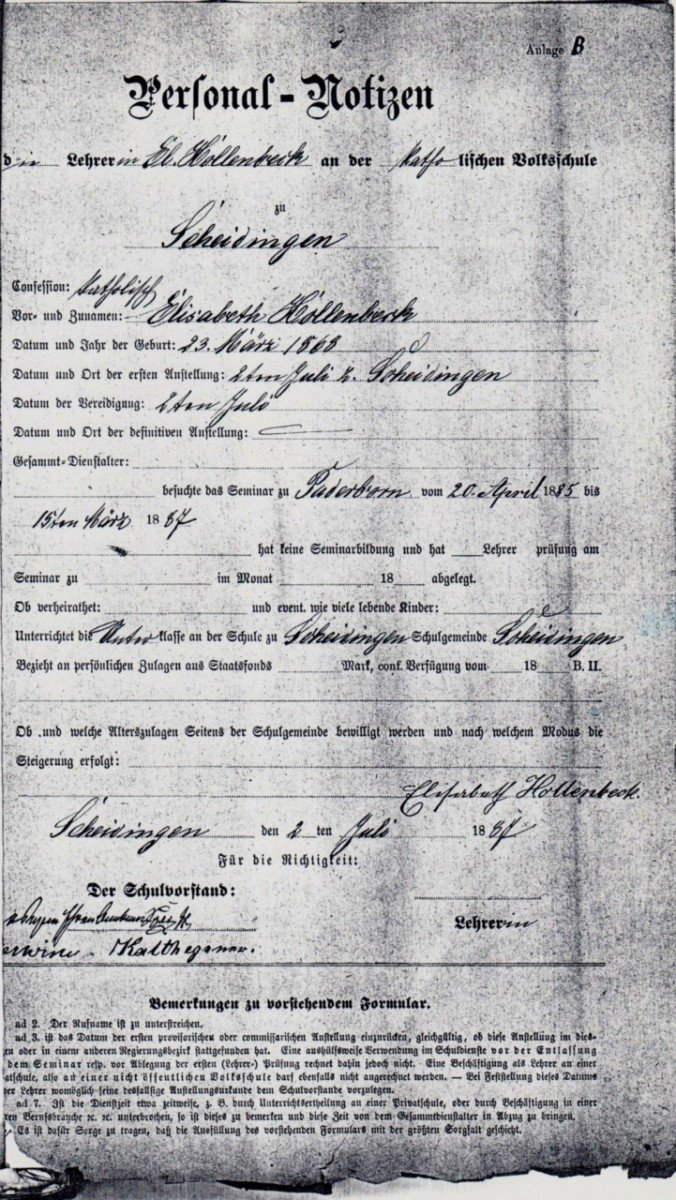 Anlage B
Personal-Notizen
d in Lehrerin El. Höllenbeck an der katho lischen Volksschule
zu
Scheidingen
Confession: katholisch
Vor- und Zunamen: Elisabeth Höllenbeck
Datum und Jahr der Geburt: 23. März 1868
Datum und Ort der ersten Anstellung: 2ten Juli z. Scheidingen
Datum der Vereidigung: 2ten Juli
Datum und Ort der definitiven Anstellung: —
Gesammt-Dienstalter:
besuchte das Seminar zu Paderborn vom 20. April 1885 bis
15ten März 1887
hat keine Seminarbildung und hat Lehrer prüfung am
Seminar zu im Monat 18 abgelegt.
Ob verheirathet: und event. wie viele lebende Kinder:
Unterrichtet die Unter klasse an der Schule zu Scheidingen Schulgemeinde Scheidingen
Bezieht an persönlichen Zulagen aus Staatsfonds Mark, conf. Verfügung vom 18 B. II.
Ob und welche Alterszulagen Seitens der Schulgemeinde bewilligt werden und nach welchem Modus die
Steigerung erfolgt:
Elisabeth Höllenbeck.
Scheidingen den 2 ten Juli 1887
Für die Richtigkeit:
Der Schulvorstand:
Lehrerin
Bemerkungen zu vorstehendem Formular.
ad 2. Der Rufname ist zu unterstreichen.
ad 3. ist das Datum der ersten provisorischen oder commissarischen Anstellung einzurücken, gleichgültig, ob diese Anstellung im dies-
en oder in einem anderen Regierungsbezirk stattgefunden hat. Eine aushülfsweise Verwendung im Schuldienste vor der Entlassung
dem Seminar resp. vor Ablegung der ersten (Lehrer-) Prüfung rechnet dahin jedoch nicht. Eine Beschäftigung als Lehrer an einer
atschule, also an einer nicht öffentlichen Volksschule darf ebenfalls nicht angerechnet werden. — Bei Feststellung dieses Datums
er Lehrer womöglich seine desfallsige Anstellungsurkunde dem Schulvorstande vorzulegen.
ad 7. Ist die Dienstzeit etwa zeitweise, z. B. durch Unterrichtsertheilung an einer Privatschule, oder durch Beschäftigung in einer
en Berufsbranche ꝛc. ꝛc. unterbrochen, so ist dieses zu bemerken und diese Zeit von dem Gesammtdienstalter in Abzug zu bringen.
Es ist dafür Sorge zu tragen, daß die Ausfüllung des vorstehenden Formulars mit der größten Sorgfalt geschieht.